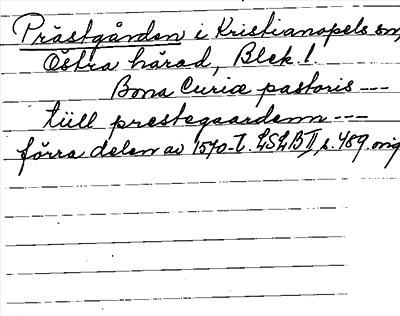 Prästgården i Kristianopels sn,
Östra härad, Blek. l.
Bona Curiæ pastoris ---
tiill prestegaardenn ---
förra delen av 1570-t. LSLB II, s. 489. orig